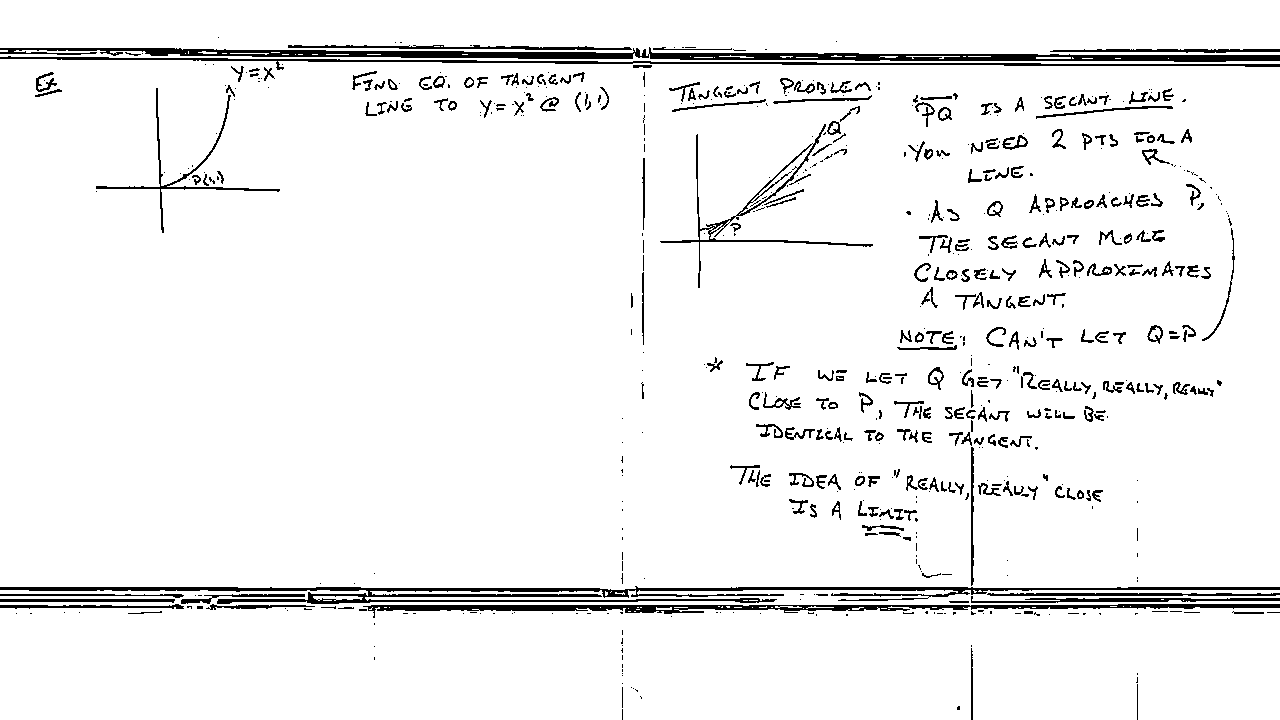 Ex
Y=X²
P(1,1)
FIND EQ. OF TANGENT
LINE TO Y=X² @ (1,1)
TANGENT PROBLEM:
Q
P
PQ IS A SECANT LINE.
· YOU NEED 2 PTS FOR A
LINE.
· AS Q APPROACHES P,
THE SECANT MORE
CLOSELY APPROXIMATES
A TANGENT.
NOTE: CAN'T LET Q=P
* IF WE LET Q GET "REALLY, REALLY, REALLY"
CLOSE TO P, THE SECANT WILL BE
IDENTICAL TO THE TANGENT.
THE IDEA OF "REALLY, REALLY" CLOSE
IS A LIMIT.